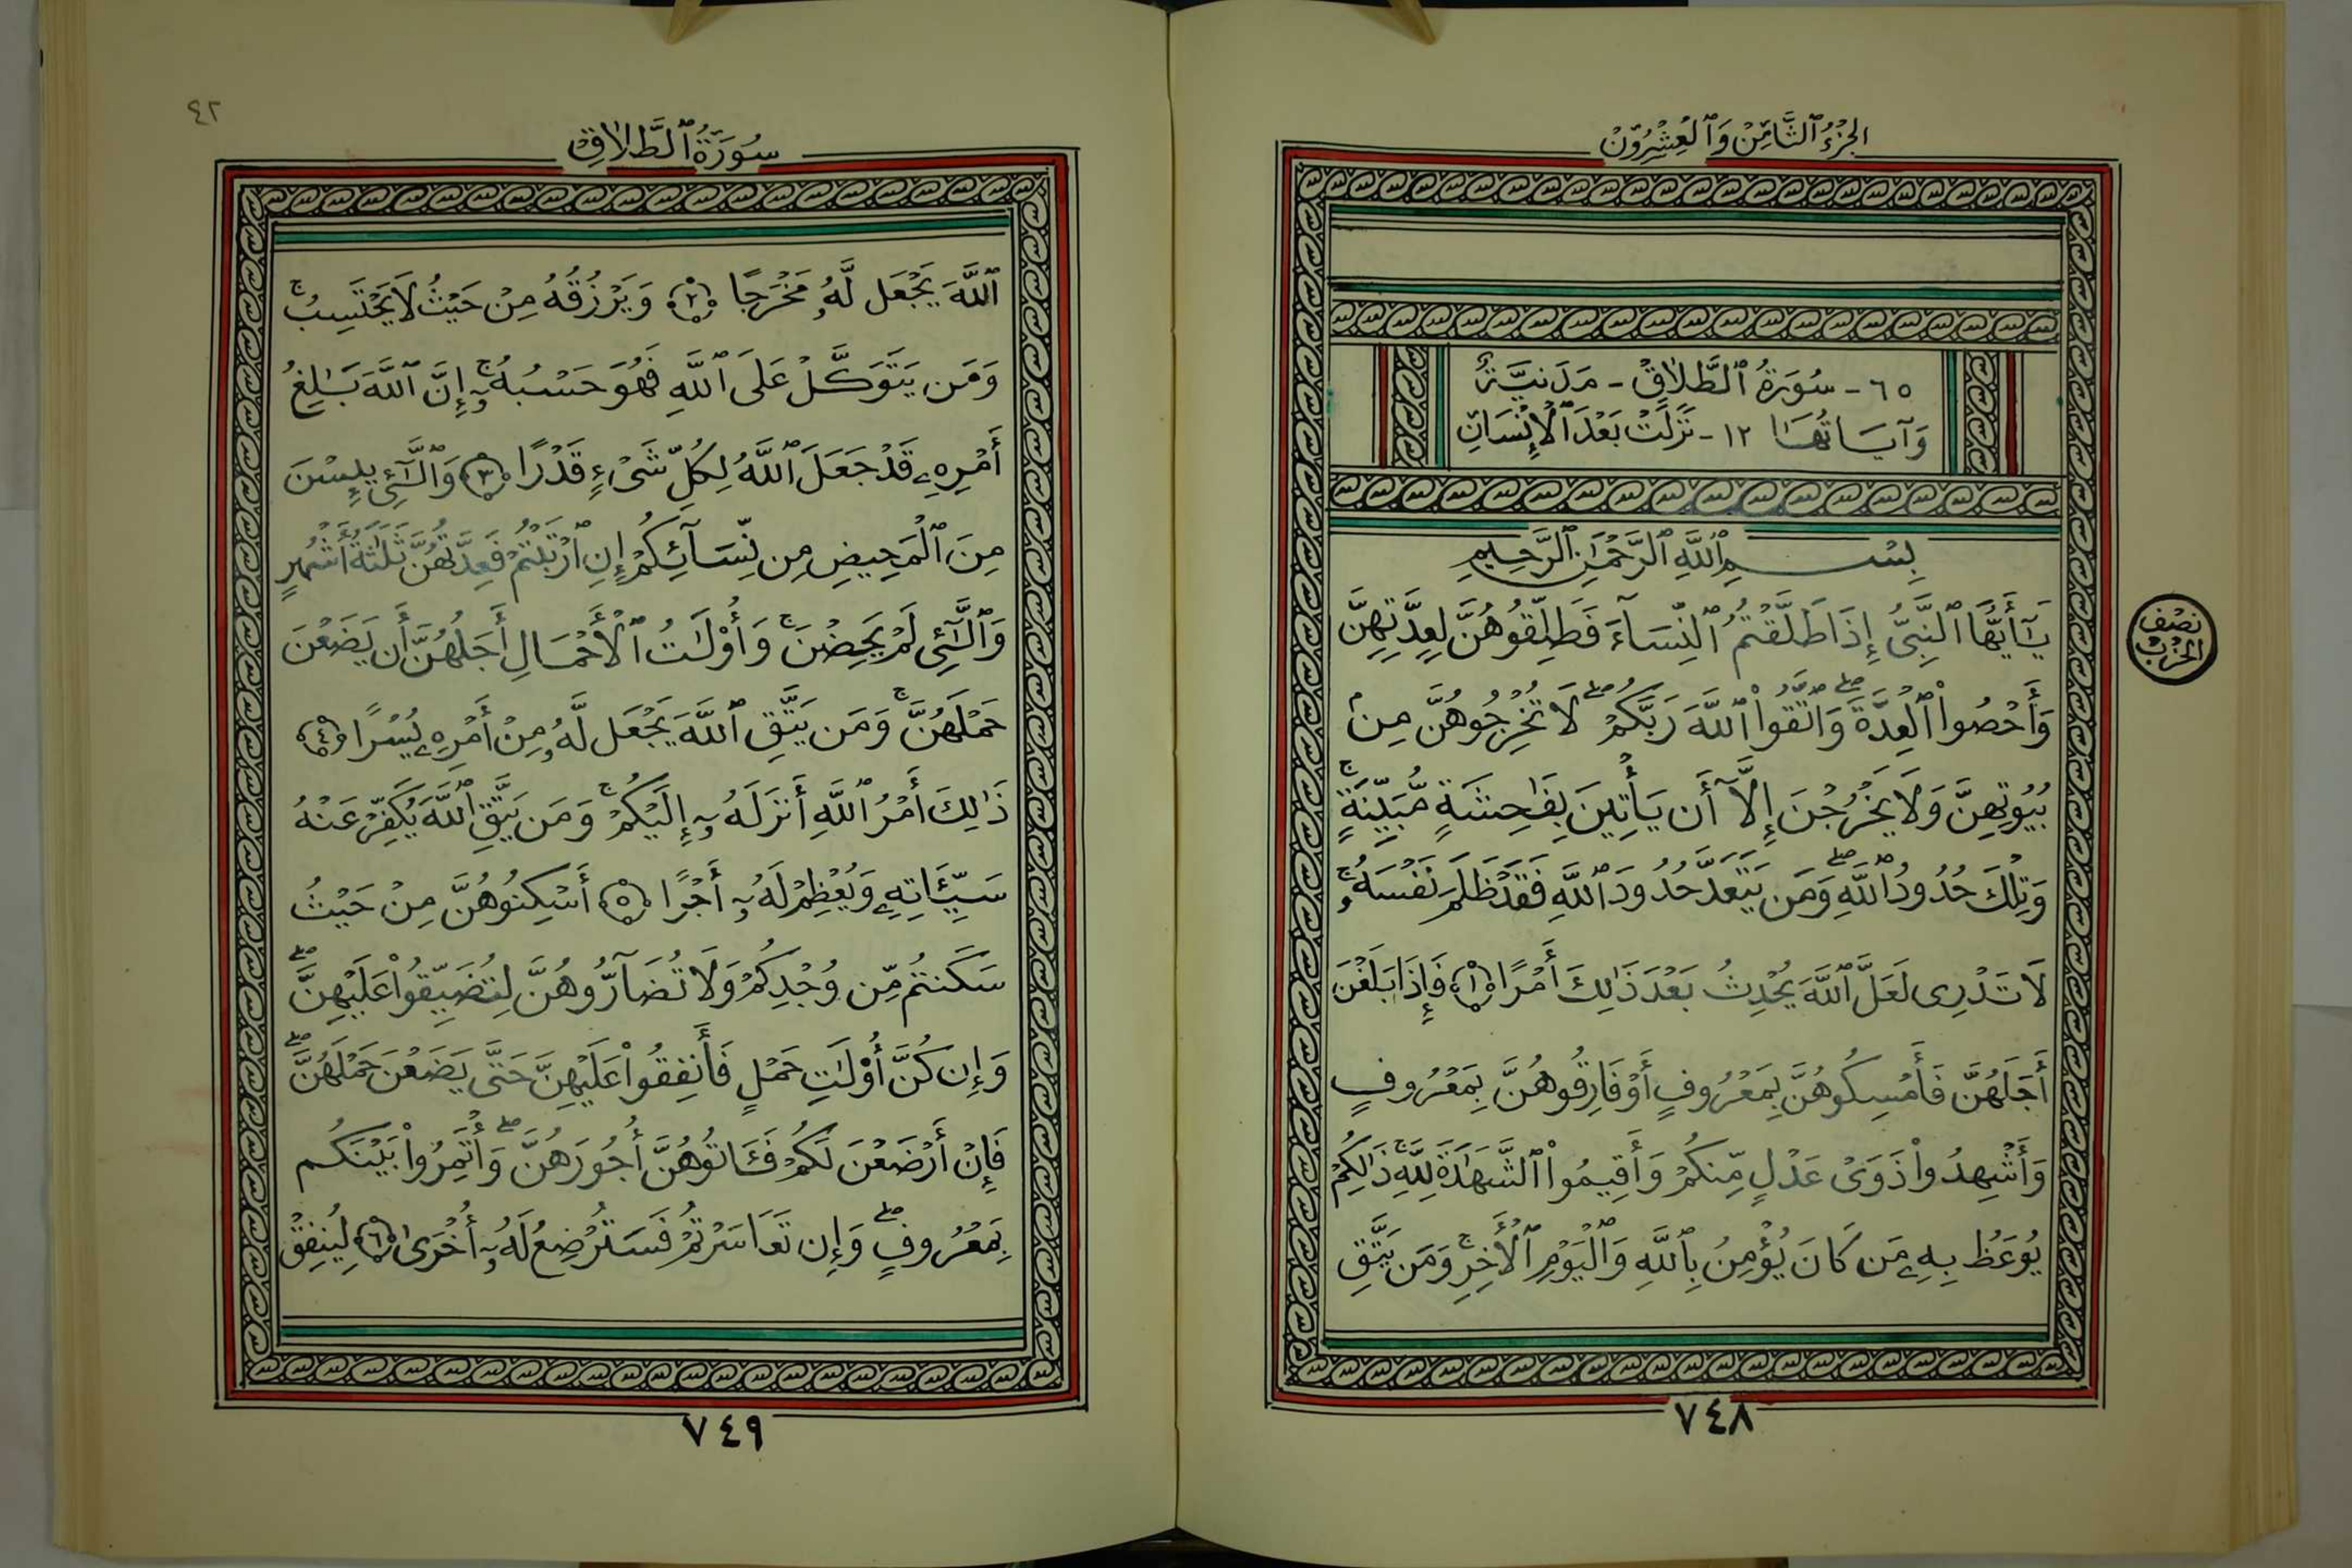 الجُزْءُ ٱلثَّامِنُ وَٱلْعِشْرُونَ
٦٥ - سُورَةُ ٱلطَّلَاقِ - مَدَنِيَّةٌ
وَآيَاتُهَا ١٢ - نَزَلَتْ بَعْدَ ٱلْإِنْسَانِ
بِسْمِ ٱللَّهِ ٱلرَّحْمَٰنِ ٱلرَّحِيمِ
يَٰٓأَيُّهَا ٱلنَّبِىُّ إِذَا طَلَّقْتُمُ ٱلنِّسَآءَ فَطَلِّقُوهُنَّ لِعِدَّتِهِنَّ
نصف الحزب
وَأَحْصُوا۟ ٱلْعِدَّةَ ۖ وَٱتَّقُوا۟ ٱللَّهَ رَبَّكُمْ ۖ لَا تُخْرِجُوهُنَّ مِنۢ
بُيُوتِهِنَّ وَلَا يَخْرُجْنَ إِلَّآ أَن يَأْتِينَ بِفَٰحِشَةٍ مُّبَيِّنَةٍ ۚ
وَتِلْكَ حُدُودُ ٱللَّهِ ۖ وَمَن يَتَعَدَّ حُدُودَ ٱللَّهِ فَقَدْ ظَلَمَ نَفْسَهُۥ ۚ
لَا تَدْرِى لَعَلَّ ٱللَّهَ يُحْدِثُ بَعْدَ ذَٰلِكَ أَمْرًا ١ فَإِذَا بَلَغْنَ
أَجَلَهُنَّ فَأَمْسِكُوهُنَّ بِمَعْرُوفٍ أَوْ فَارِقُوهُنَّ بِمَعْرُوفٍ
وَأَشْهِدُوا۟ ذَوَىْ عَدْلٍ مِّنكُمْ وَأَقِيمُوا۟ ٱلشَّهَٰدَةَ لِلَّهِ ۚ ذَٰلِكُمْ
يُوعَظُ بِهِۦ مَن كَانَ يُؤْمِنُ بِٱللَّهِ وَٱلْيَوْمِ ٱلْأَخِرِ ۚ وَمَن يَتَّقِ
٧٤٨
٤٢
سُورَةُ ٱلطَّلَاقِ
ٱللَّهَ يَجْعَل لَّهُۥ مَخْرَجًا ٢ وَيَرْزُقْهُ مِنْ حَيْثُ لَا يَحْتَسِبُ ۚ
وَمَن يَتَوَكَّلْ عَلَى ٱللَّهِ فَهُوَ حَسْبُهُۥٓ ۚ إِنَّ ٱللَّهَ بَٰلِغُ
أَمْرِهِۦ قَدْ جَعَلَ ٱللَّهُ لِكُلِّ شَىْءٍ قَدْرًا ٣ وَٱلَّٰٓـِٔى يَئِسْنَ
مِنَ ٱلْمَحِيضِ مِن نِّسَآئِكُمْ إِنِ ٱرْتَبْتُمْ فَعِدَّتُهُنَّ ثَلَٰثَةُ أَشْهُرٍ
وَٱلَّٰٓـِٔى لَمْ يَحِضْنَ ۚ وَأُو۟لَٰتُ ٱلْأَحْمَالِ أَجَلُهُنَّ أَن يَضَعْنَ
حَمْلَهُنَّ ۚ وَمَن يَتَّقِ ٱللَّهَ يَجْعَل لَّهُۥ مِنْ أَمْرِهِۦ يُسْرًا ٤
ذَٰلِكَ أَمْرُ ٱللَّهِ أَنزَلَهُۥٓ إِلَيْكُمْ ۚ وَمَن يَتَّقِ ٱللَّهَ يُكَفِّرْ عَنْهُ
سَيِّـَٔاتِهِۦ وَيُعْظِمْ لَهُۥٓ أَجْرًا ٥ أَسْكِنُوهُنَّ مِنْ حَيْثُ
سَكَنتُم مِّن وُجْدِكُمْ وَلَا تُضَآرُّوهُنَّ لِتُضَيِّقُوا۟ عَلَيْهِنَّ ۖ
وَإِن كُنَّ أُو۟لَٰتِ حَمْلٍ فَأَنفِقُوا۟ عَلَيْهِنَّ حَتَّىٰ يَضَعْنَ حَمْلَهُنَّ ۖ
فَإِنْ أَرْضَعْنَ لَكُمْ فَـَٔاتُوهُنَّ أُجُورَهُنَّ ۖ وَأْتَمِرُوا۟ بَيْنَكُم
بِمَعْرُوفٍ ۖ وَإِن تَعَاسَرْتُمْ فَسَتُرْضِعُ لَهُۥٓ أُخْرَىٰ ٦ لِيُنفِقْ
٧٤٩